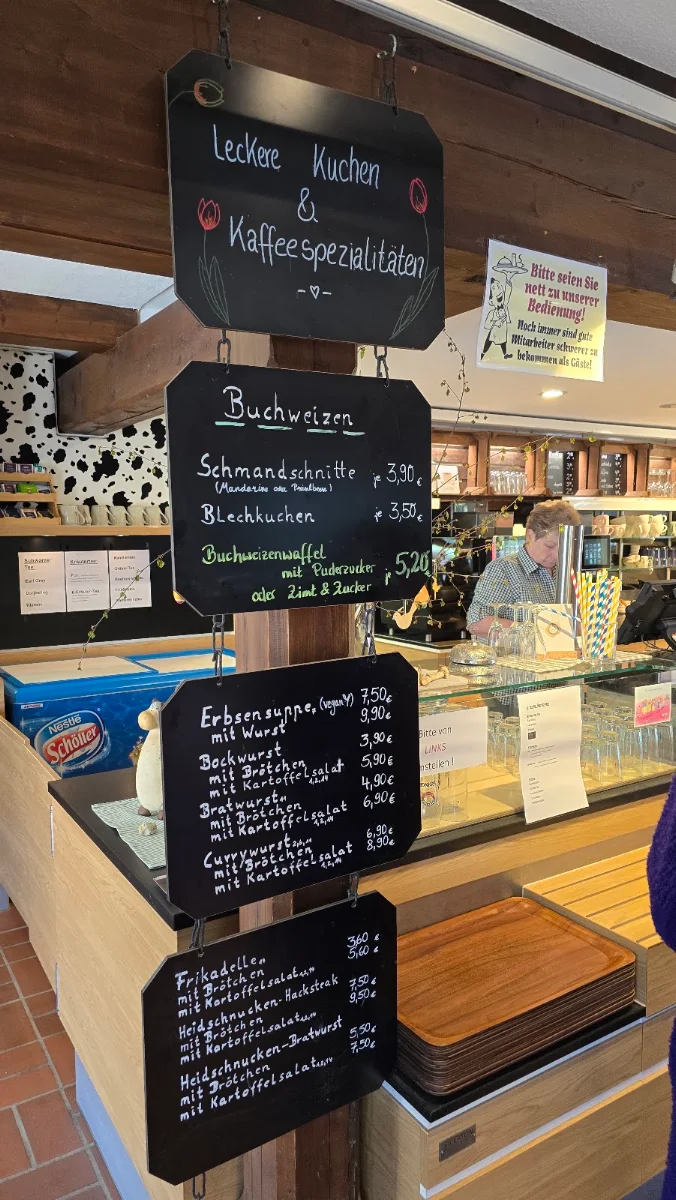 Leckere Kuchen
&
Kaffeespezialitäten
Bitte seien Sie
nett zu unserer
Bedienung!
Noch immer sind gute
Mitarbeiter schwerer zu
bekommen als Gäste!
Buchweizen
Schmandschnitte je 3,90 €
Blechkuchen je 3,50 €
Buchweizenwaffel
mit Puderzucker je 5,20
oder Zimt & Zucker
Schwarzer
Tee
Earl Grey
Kräutertee
Nestlé
Schöller
Erbsensuppe, (vegan) 7,50 €
mit Wurst 9,90 €
Bockwurst
mit Brötchen 3,90 €
mit Kartoffelsalat 5,90 €
Bratwurst
mit Brötchen 4,90 €
mit Kartoffelsalat 6,90 €
Currywurst
mit Brötchen 6,90 €
mit Kartoffelsalat 8,90 €
Bitte von
LINKS
anstellen!
Frikadelle
mit Brötchen 3,60 €
mit Kartoffelsalat 5,60 €
Heidschnucken-Hacksteak
mit Brötchen 7,50 €
mit Kartoffelsalat 9,50 €
Heidschnucken-Bratwurst
mit Brötchen 5,50 €
mit Kartoffelsalat 7,50 €